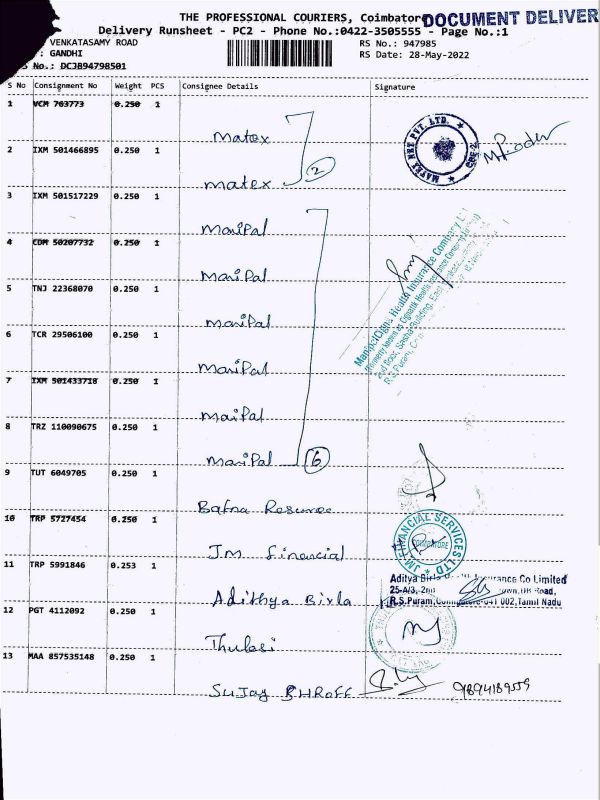 THE PROFESSIONAL COURIERS, Coimbator
DOCUMENT DELIVER
Delivery Runsheet - PC2 - Phone No.:0422-3505555 - Page No.:1
VENKATASAMY ROAD
: GANDHI
RS No.: 947985
RS Date: 28-May-2022
S No.: DCJB94798501
S No Consignment No Weight PCS Consignee Details Signature
1 VCM 763773 0.250 1
Matex
2 IXM 501466895 0.250 1
matex
2
3 IXM 501517229 0.250 1
ManiPal
4 CDM 50207732 0.250 1
ManiPal
5 TNJ 22368070 0.250 1
ManiPal
6 TCR 29506100 0.250 1
ManiPal
7 IXM 501433718 0.250 1
ManiPal
8 TRZ 110090675 0.250 1
ManiPal
6
9 TUT 6049705 0.250 1
10 TRP 5727454 0.250 1
Jm Financial
11 TRP 5991846 0.253 1
Adithya Birla
12 PGT 4112092 0.250 1
Thulasi
13 MAA 857535148 0.250 1
Sujay SHROFF
MATEX NET PVT. LTD.
CBE-2
ManipalCigna Health Insurance Company
2nd Floor,
R.S.Puram,
JM FINANCIAL SERVICES LTD
COIMBATORE
Aditya Birla Insurance Co Limited
25-A/3, 2nd Town, DB Road,
R.S.Puram, Coimbatore-641 002, Tamil Nadu